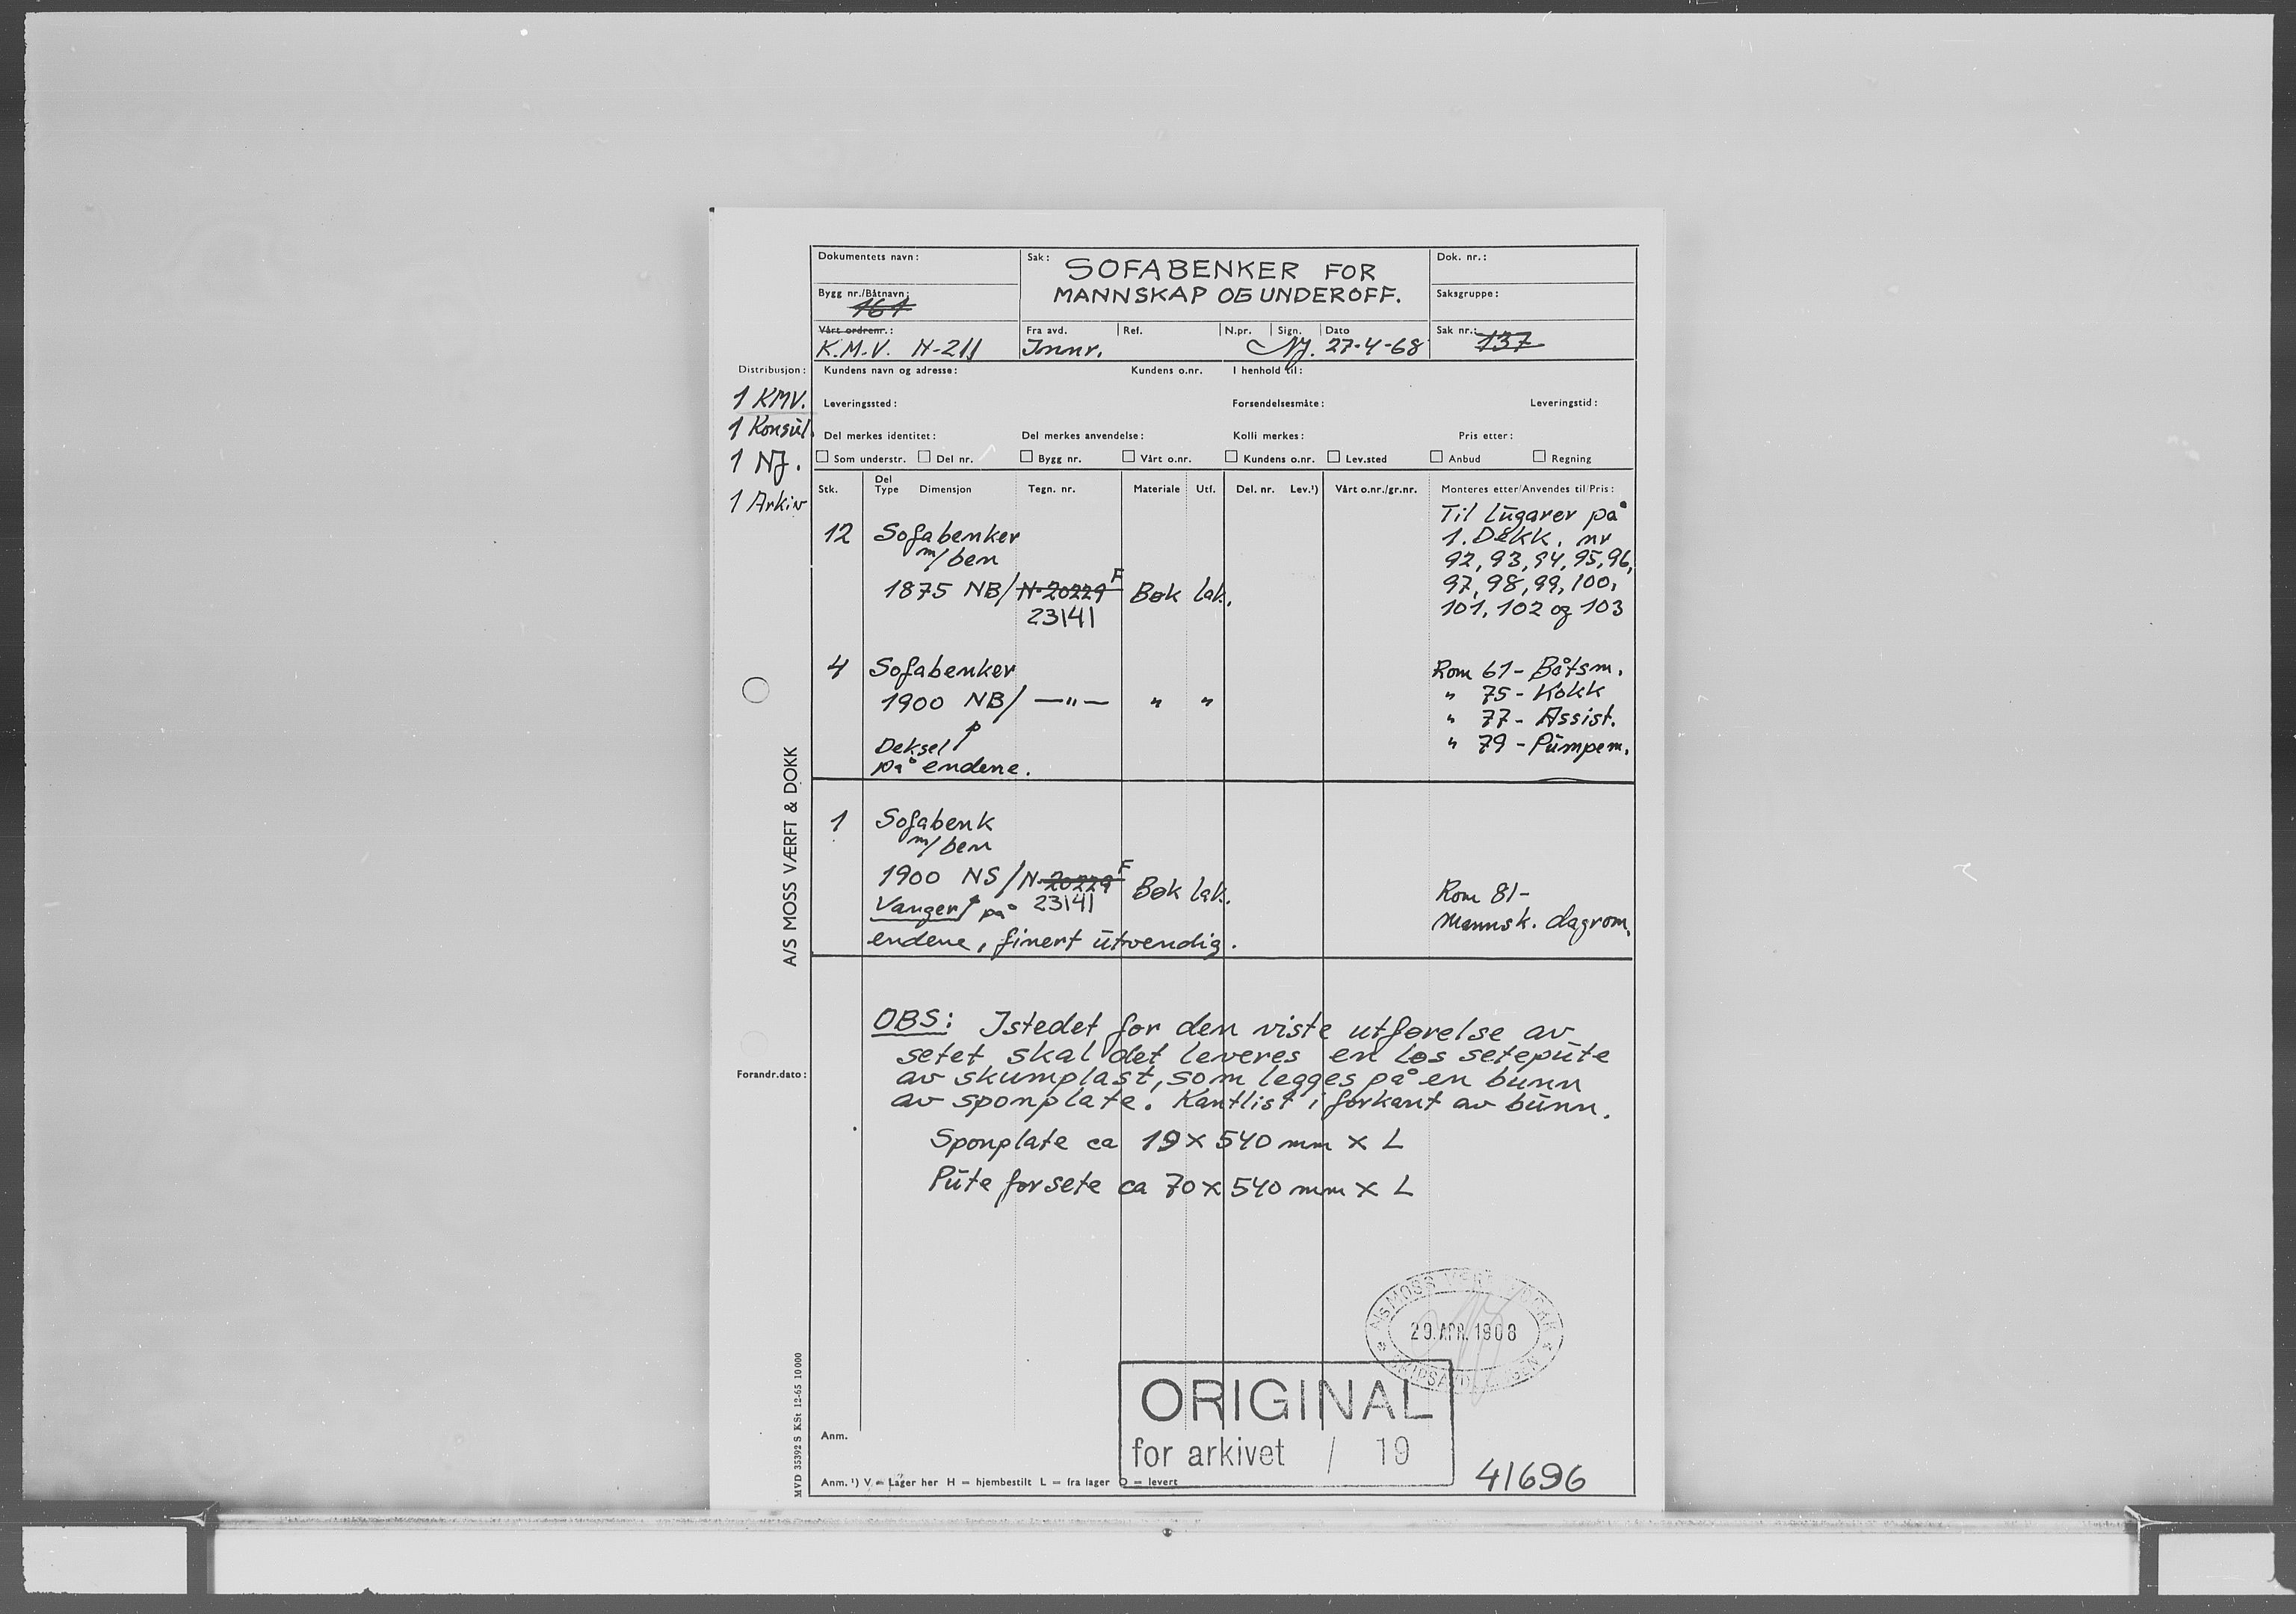 Dokumentets navn:
Sak: SOFABENKER FOR
MANNSKAP OG UNDEROFF.
Dok. nr.:
Bygg nr./Båtnavn:
161
Saksgruppe:
Vårt ordrenr.:
K.M.V. H-211
Fra avd. Ref. N.pr. Sign. Dato
Innr. NJ. 27-4-68
Sak nr.: 137
Distribusjon:
1 KMV.
1 Konsul
1 NJ.
1 Arkiv
Kundens navn og adresse: Kundens o.nr. I henhold til:
Leveringssted: Forsendelsesmåte: Leveringstid:
Del merkes identitet: Del merkes anvendelse: Kolli merkes: Pris etter:
Som understr. Del nr. Bygg nr. Vårt o.nr. Kundens o.nr. Lev.sted Anbud Regning
Stk. Del Type Dimensjon Tegn. nr. Materiale Utf. Del. nr. Lev.¹) Vårt o.nr./gr.nr. Monteres etter/Anvendes til/Pris:
12 Sofabenker
m/ben
1875 NB/N-20229 F Bøk lak.
23141
Til lugarer på
1. Dekk. nr
92, 93, 94, 95, 96,
97, 98, 99, 100,
101, 102 og 103
4 Sofabenker
1900 NB/ —"— " "
Deksel
på endene.
Rom 61 - Båtsm.
" 75 - Kokk
" 77 - Assist.
" 79 - Pumpem.
1 Sofabenk
m/ben
1900 NS/N-20229 F Bøk lak.
Vanger på 23141
endene, finert utvendig.
Rom 81-
Mannsk. dagrom.
OBS: Istedet for den viste utførelse av
setet skal det leveres en løs setepute
av skumplast, som legges på en bunn
av sponplate. Kantlist i forkant av bunn.
Sponplate ca 19 x 540 mm x L
Pute for sete ca 70 x 540 mm x L
A/S MOSS VÆRFT & DOKK
Forandr.dato:
A/S MOSS VÆRFT & DOKK
29. APR. 1968
SKIPSAVDELINGEN
ORIGINAL
for arkivet / 19
Anm.
Anm. ¹) V = Lager her H = hjembestilt L = fra lager O = levert
41696
MVD 35392 S KSt 12-65 10000